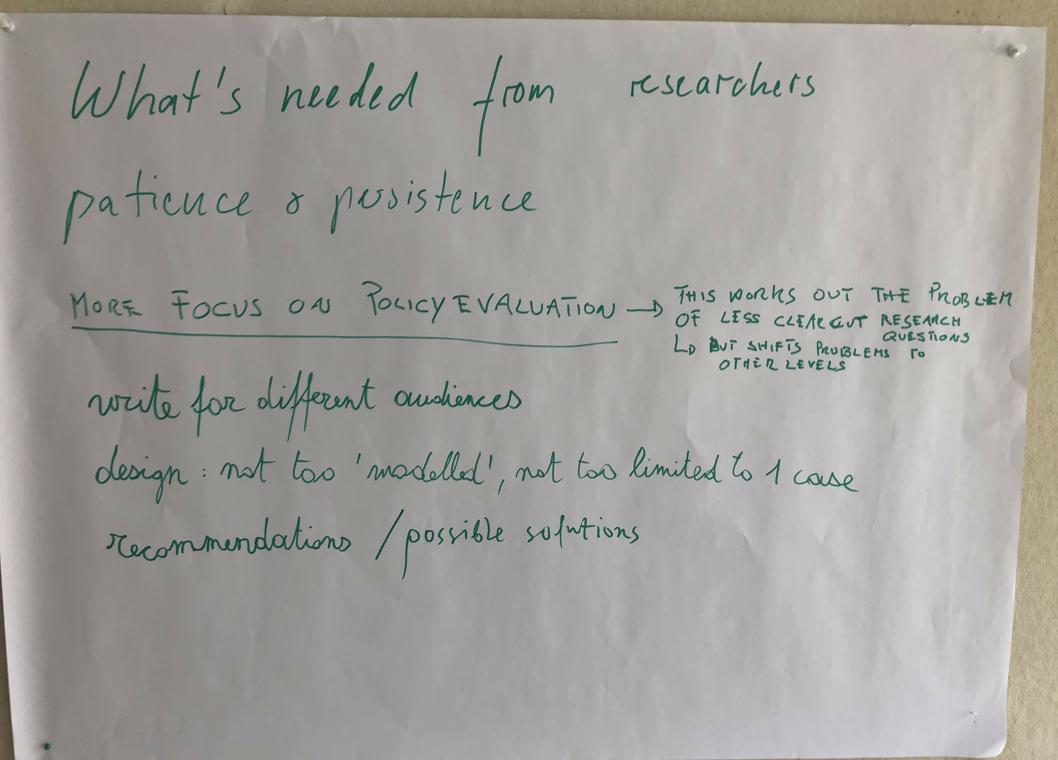 What's needed from researchers
patience & persistence
MORE FOCUS ON POLICY EVALUATION → THIS WORKS OUT THE PROBLEM
OF LESS CLEARCUT RESEARCH
QUESTIONS
↳ BUT SHIFTS PROBLEMS TO
OTHER LEVELS
write for different audiences
design : not too 'modelled', not too limited to 1 case
recommendations / possible solutions